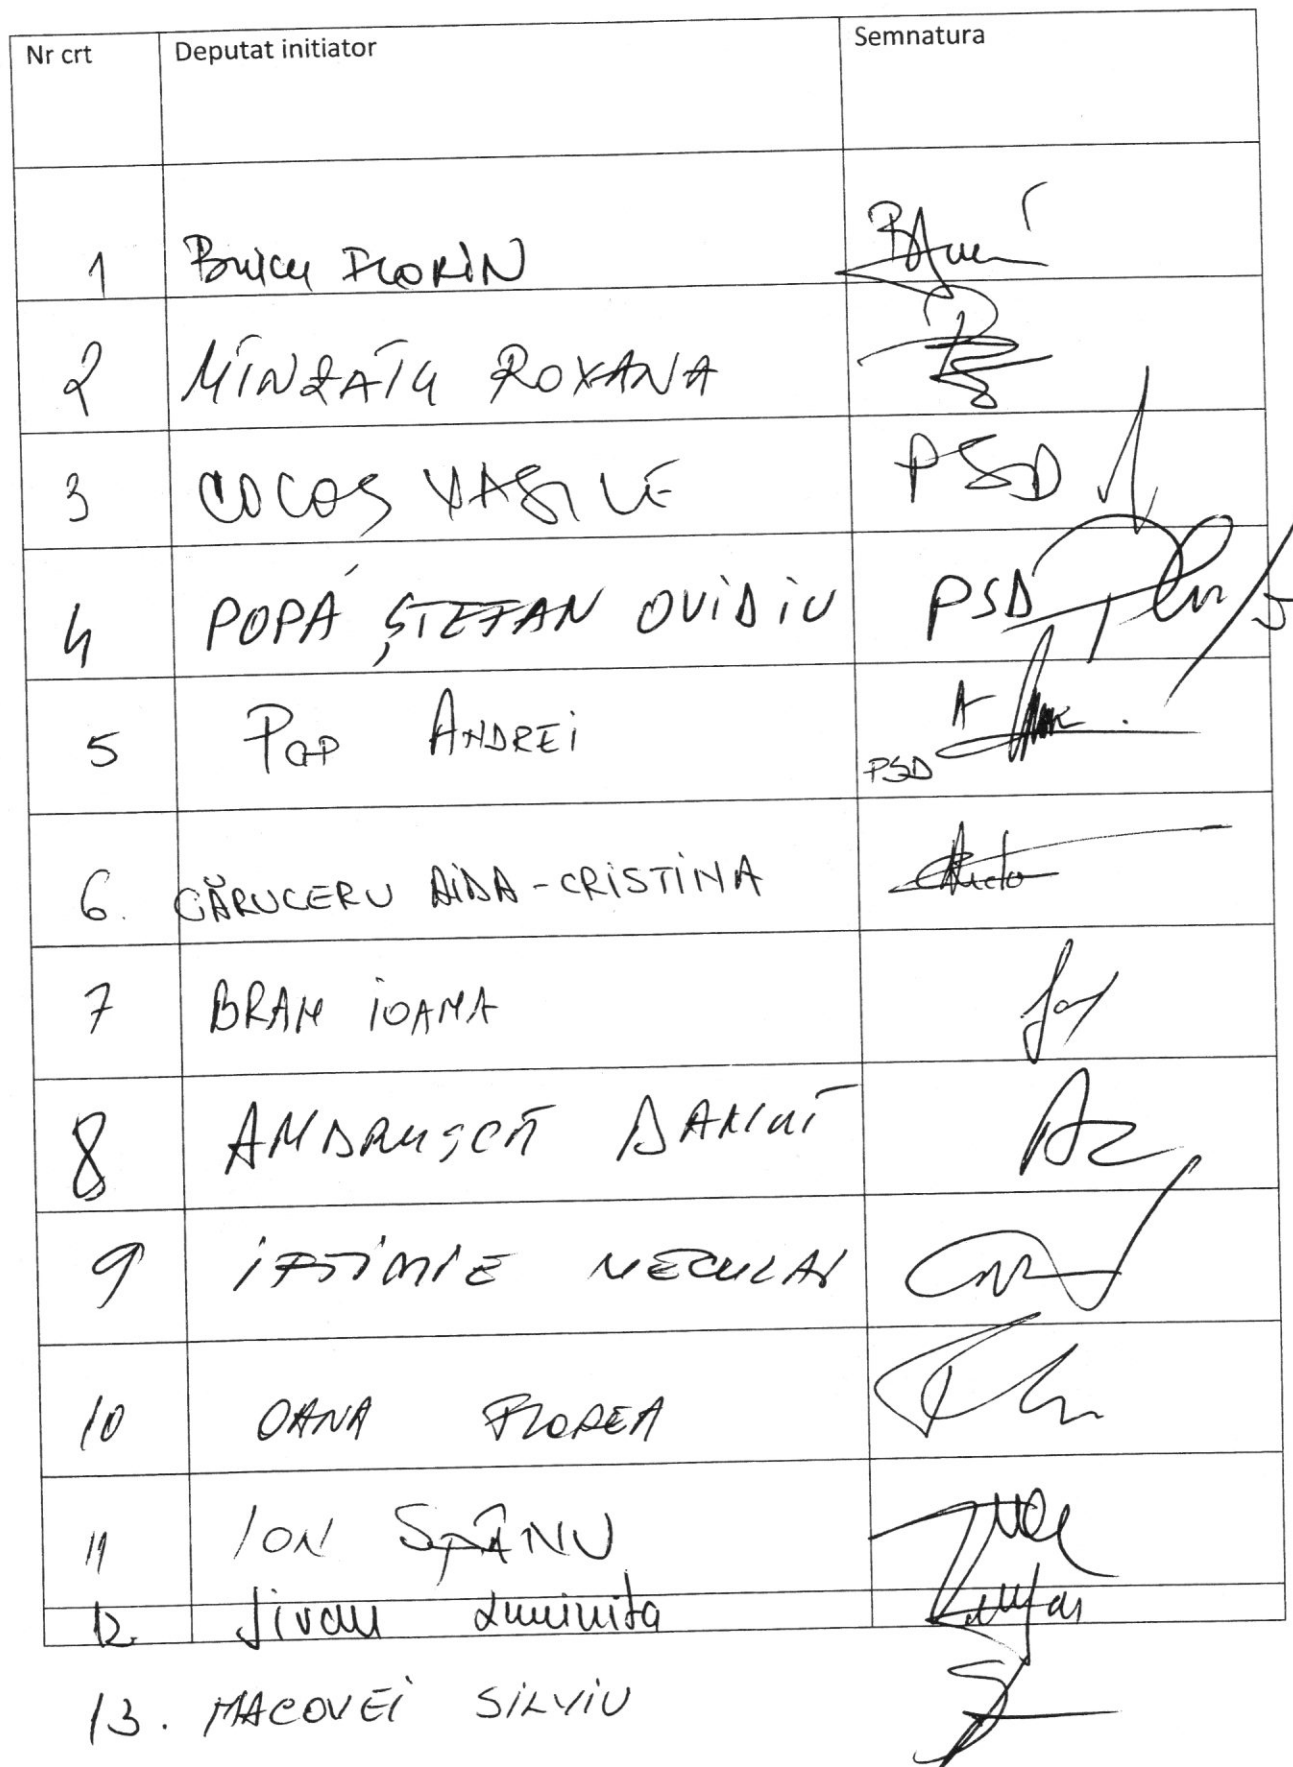 Nr crt Deputat initiator Semnatura
1 Buicu FLORIN
2 MÎNZATU ROXANA
3 COCOS VASILE PSD
4 POPA ȘTEFAN OVIDIU PSD
5 POP ANDREI PSD
6. CĂRUCERU AIDA-CRISTINA
7 BRAN IOANA
8 ANDRUȘCĂ DANUT
9 IFTIMIE NECULAI
10 OANA FLOREA
11 ION SPÂNU
12. Jivan Luminita
13. MACOVEI SILVIU